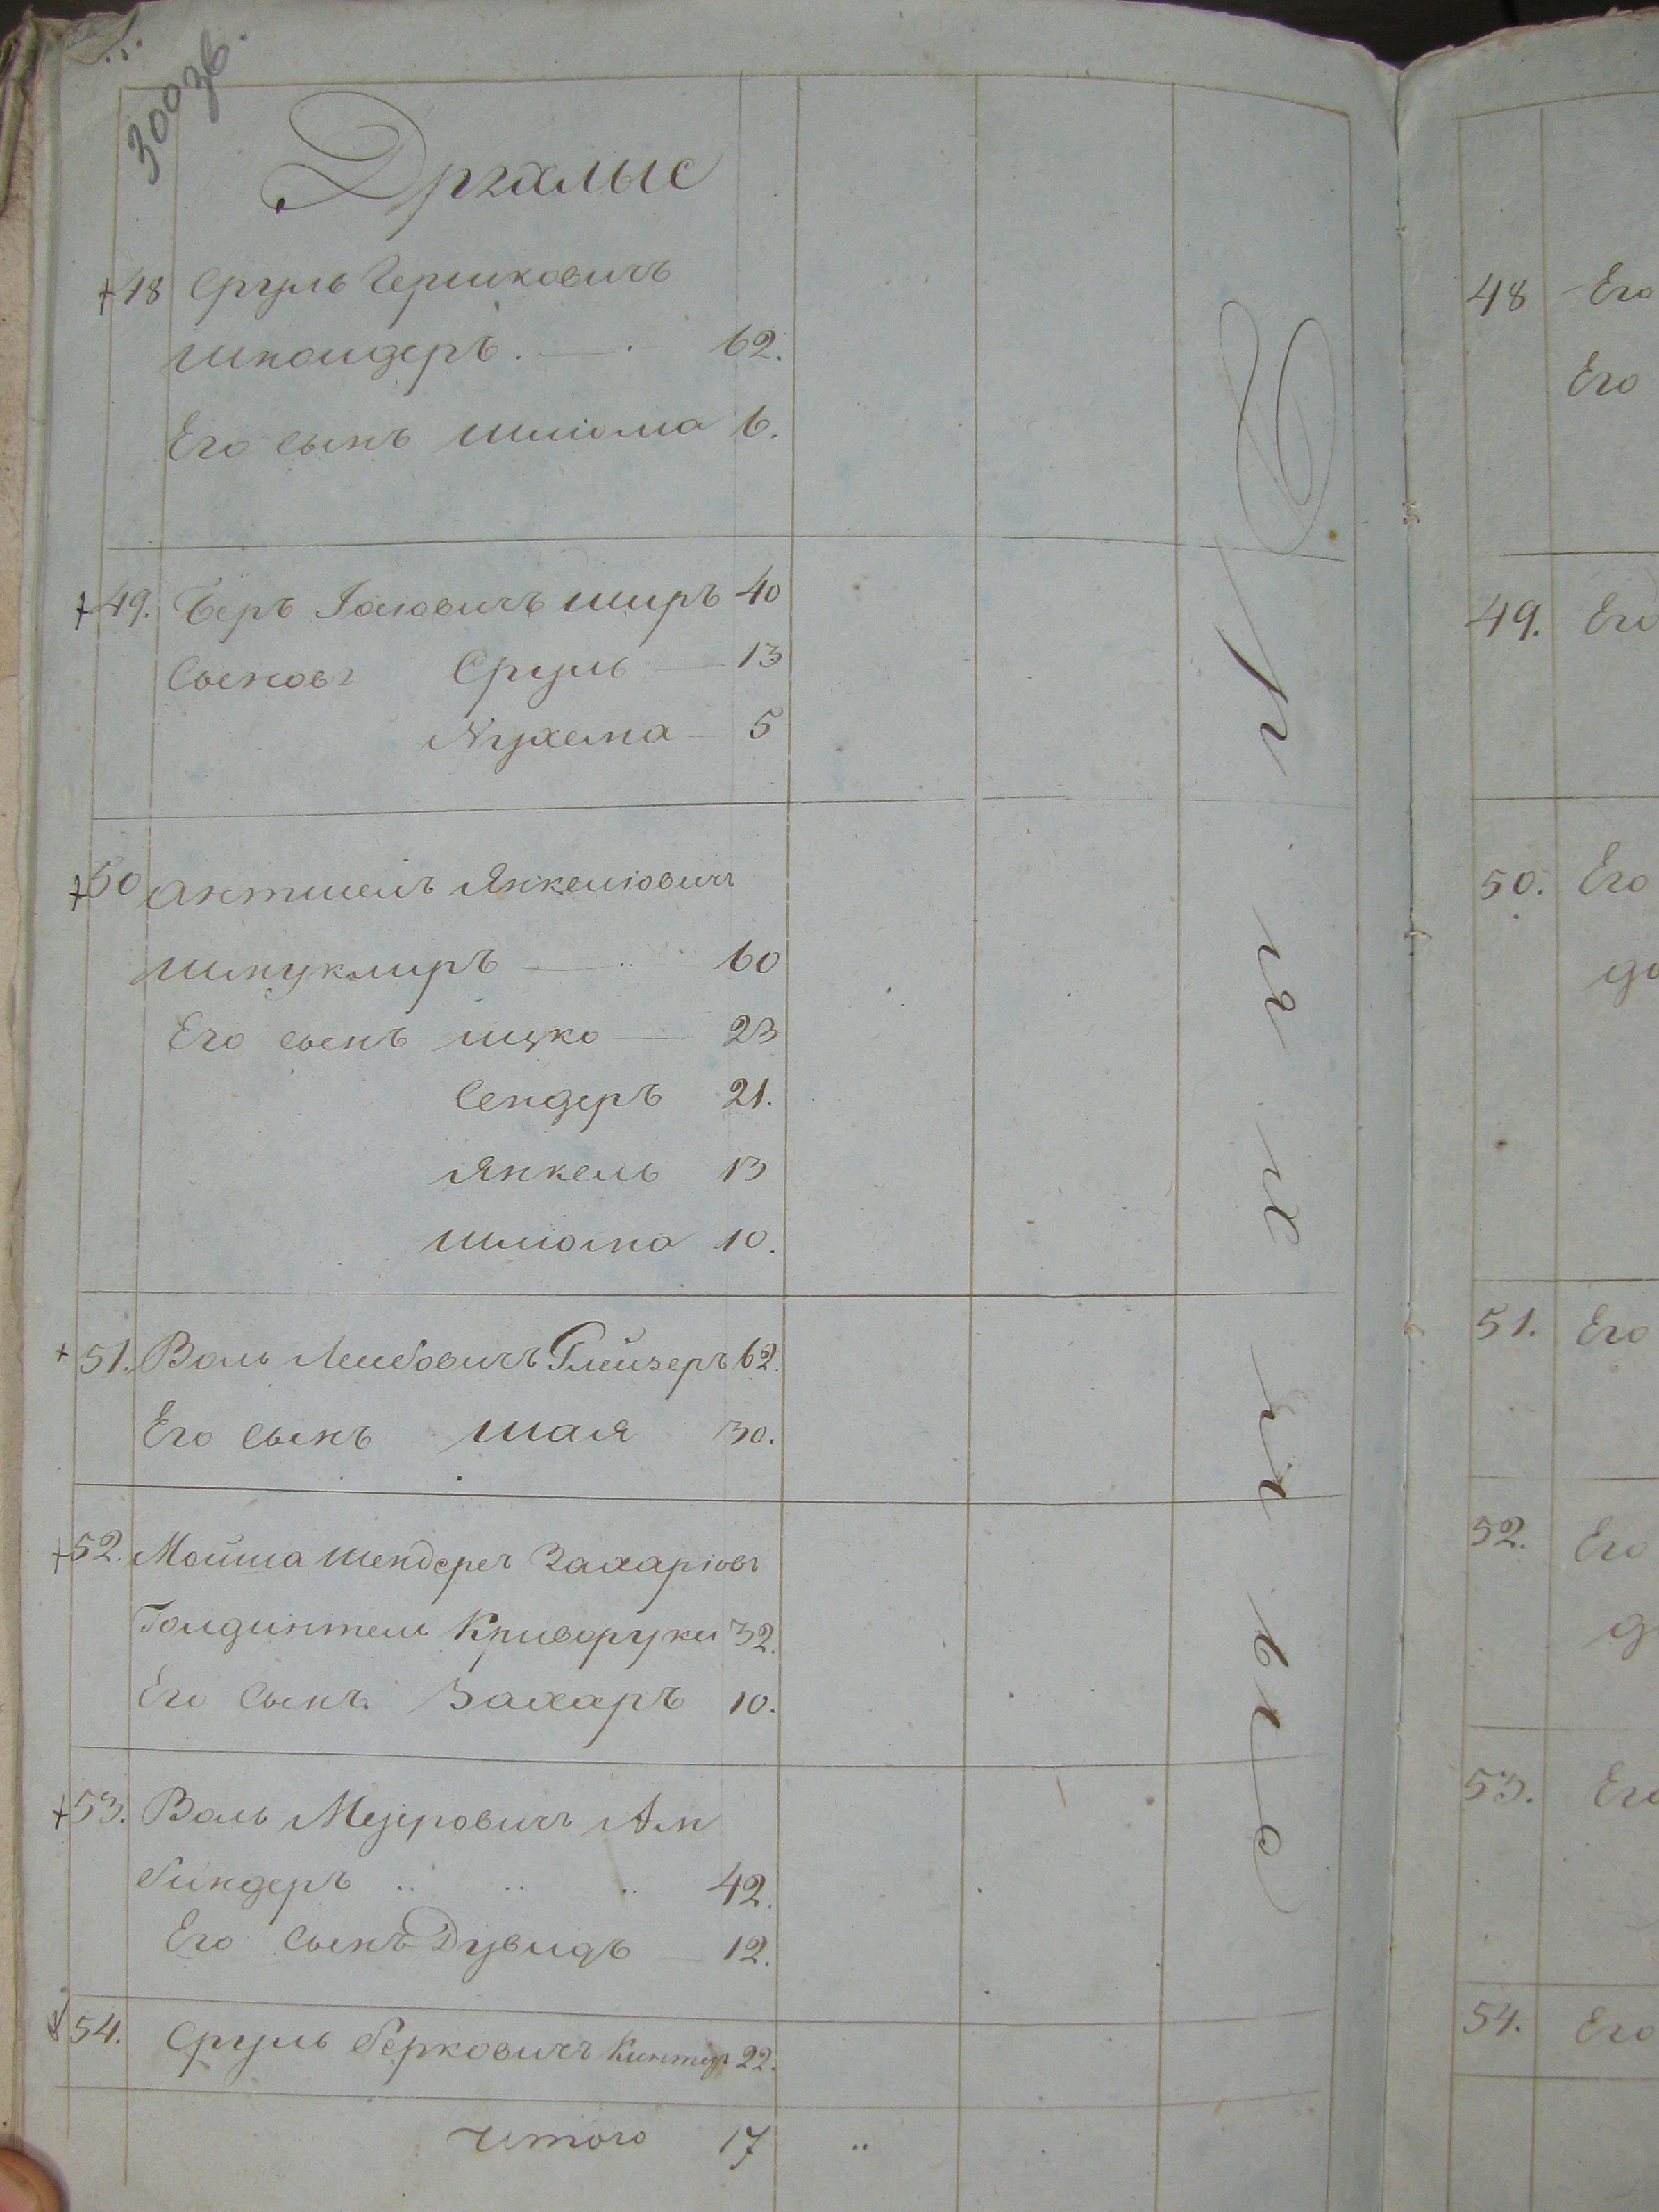 300 зв.
Дряхлые
48 Сруль Гершковичъ
шнайдеръ . — . 62.
Его сынъ шліома 6.
49. Беръ Іосіовичъ ширъ 40
Сыновя Сруль — 13
Нухема — 5
50 Янкеліовичъ
шпуклиръ — .. 60
Его сынъ ицко — 23
Сендеръ 21.
Янкель 13
шліома 10.
51. Воль Лейбовичъ Глейзеръ 62.
Его сынъ шая 30.
52. Мойша шендерег Захаріовъ
Криворуки 32.
Его Сынъ Захаръ 10.
53. Воль Меїровичъ Ам
биндеръ .. .. .. 42.
Его Сынъ Дувидъ — 12.
54. Сруль Берковичъ 22.
Итого 17 ..
Дряхлые
48 Его
Его
49. Его
50. Его
до
51. Его
52. Его
53. Его
54. Его